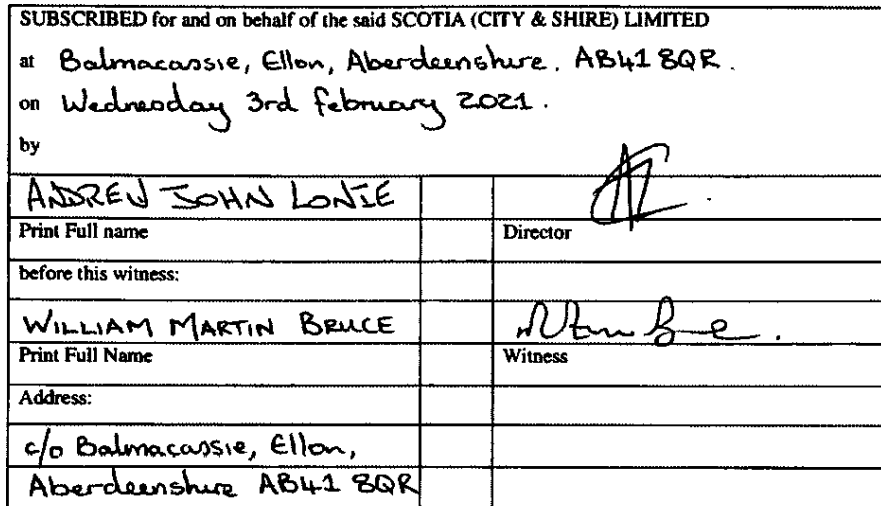 SUBSCRIBED for and on behalf of the said SCOTIA (CITY & SHIRE) LIMITED
at Balmacassie, Ellon, Aberdeenshire. AB41 8QR.
on Wednesday 3rd February 2021.
by
ANDREW JOHN LONIE
Print Full name Director
before this witness:
WILLIAM MARTIN BRUCE
Print Full Name Witness
Address:
c/o Balmacassie, Ellon,
Aberdeenshire AB41 8QR